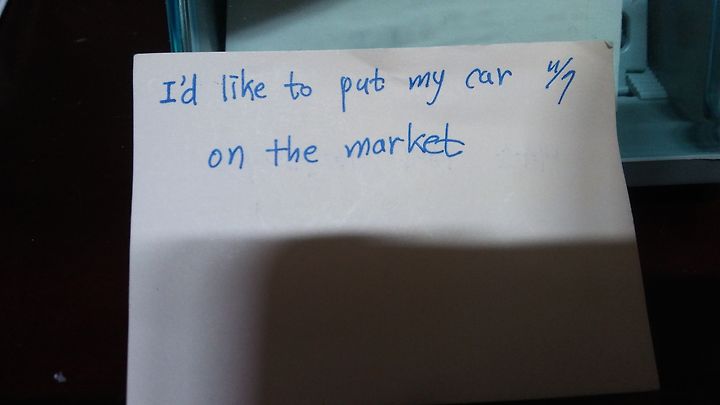 I'd like to put my car
on the market